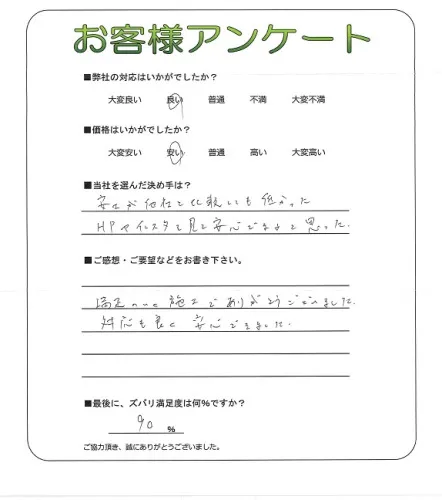 お客様アンケート
■弊社の対応はいかがでしたか?
大変良い 良い 普通 不満 大変不満
■価格はいかがでしたか?
大変安い 安い 普通 高い 大変高い
■当社を選んだ決め手は?
が他社と比較しても低かった
HPやインスタを見て安心できると思った.
■ご感想・ご要望などをお書き下さい。
施工でありがとうございました.
対応も良く安心できました.
■最後に、ズバリ満足度は何%ですか?
90 %
ご協力頂き、誠にありがとうございました。